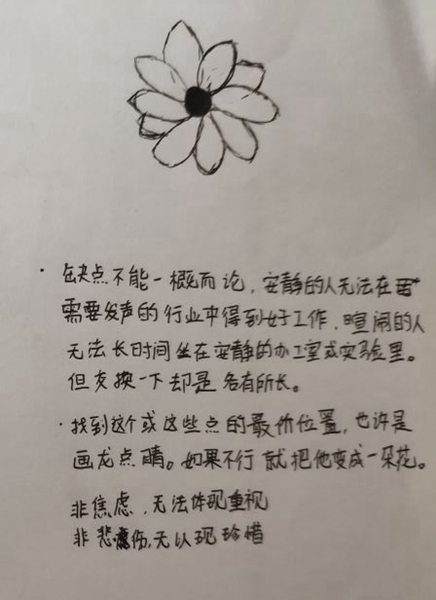 · 缺点不能一概而论，安静的人无法在
需要发声的行业中得到好工作，喧闹的人
无法长时间坐在安静的办工室或实验里。
但交换一下却是各有所长。
· 找到这个或这些点的最佳位置，也许是
画龙点睛。如果不行就把他变成一朵花。
非焦虑，无法体现重视
非悲伤，无以现珍惜